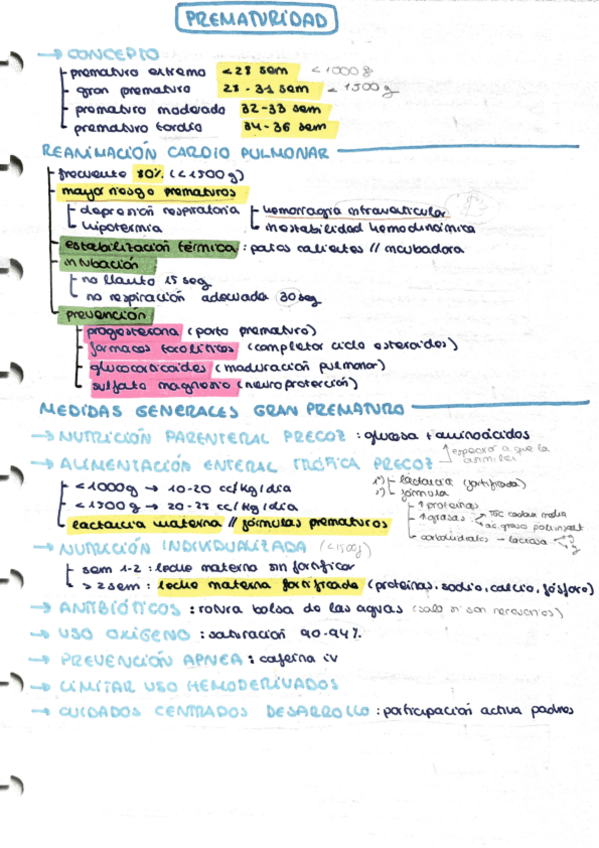 PREMATURIDAD
→ CONCEPTO
prematuro extremo <28 sem <1000g
gran prematuro 28-31 sem < 1500g
prematuro moderado 32-33 sem
prematuro tardío 34-36 sem
REANIMACIÓN CARDIO PULMONAR
frecuente 80% (<1500g)
mayor riesgo prematuros
depresión respiratoria hemorragia intraventricular
hipotermia inestabilidad hemodinámica
estabilización térmica : paños calientes // incubadora
intubación
no llanto 15 seg
no respiración adecuada 30 seg
prevención
progesterona (parto prematuro)
fármacos tocolíticos (completar ciclo esteroides)
glucocorticoides (maduración pulmonar)
sulfato magnesio (neuroprotección)
MEDIDAS GENERALES GRAN PREMATURO
→ NUTRICIÓN PARENTERAL PRECOZ : glucosa + aminoácidos
espero a que la asimile
→ ALIMENTACIÓN ENTERAL TRÓFICA PRECOZ
<1000g → 10-20 cc/kg/día
<1500g → 20-25 cc/kg/día
lactancia materna // fórmulas prematuros
1º) lactancia (fortificada)
2º) fórmula
↑ proteínas
↑ grasas → TGC cadena media
ac. graso poliinsat
carbohidratos → lactosa
→ NUTRICIÓN INDIVIDUALIZADA (<1500g)
sem 1-2 : leche materna sin fortificar
> 2 sem : leche materna fortificada (proteínas, sodio, calcio, fósforo)
→ ANTIBIÓTICOS : rotura bolsa de las aguas (solo si son necesarios)
→ USO OXÍGENO : saturación 90-94%
→ PREVENCIÓN APNEA : cafeína iv
→ LIMITAR USO HEMODERIVADOS
→ CUIDADOS CENTRADOS DESARROLLO : participación activa padres